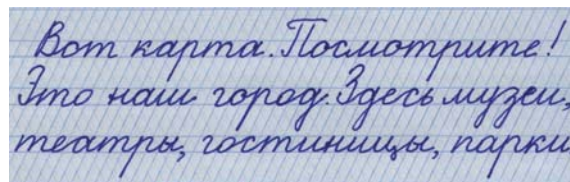 Вот карта. Посмотрите!
Это наш город. Здесь музеи,
театры, гостиницы, парки